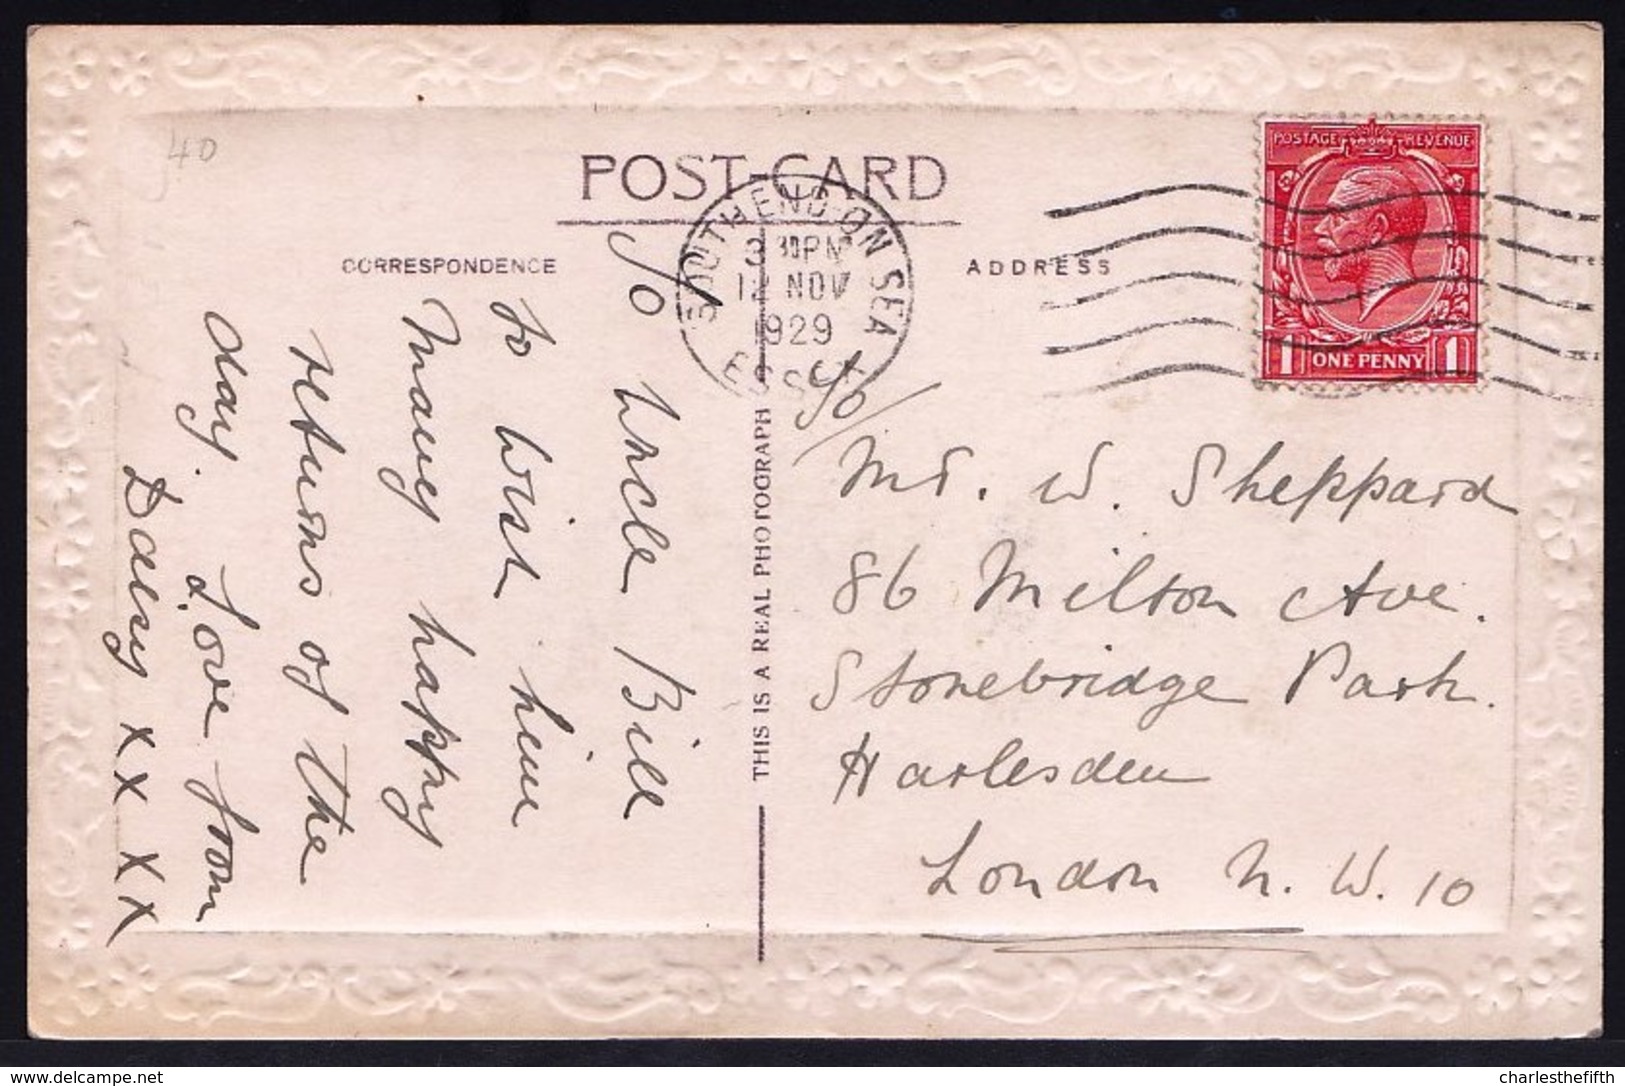 40
POST-CARD
CORRESPONDENCE
ADDRESS
SOUTHEND ON SEA
3 30PM
12 NOV
1929
ESSEX
POSTAGE REVENUE
1 ONE PENNY 1
THIS IS A REAL PHOTOGRAPH
To Uncle Bill
to wish him
Many happy
returns of the
day. Love from
Daisy X X X X
To/
Mr. W. Sheppard
86 Milton Ave.
Stonebridge Park.
Harlesden
London N.W. 10
delcampe.net
charlesthefifth